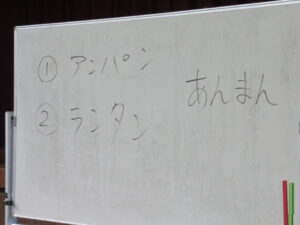 ① アンパン
② ランタン
あんまん